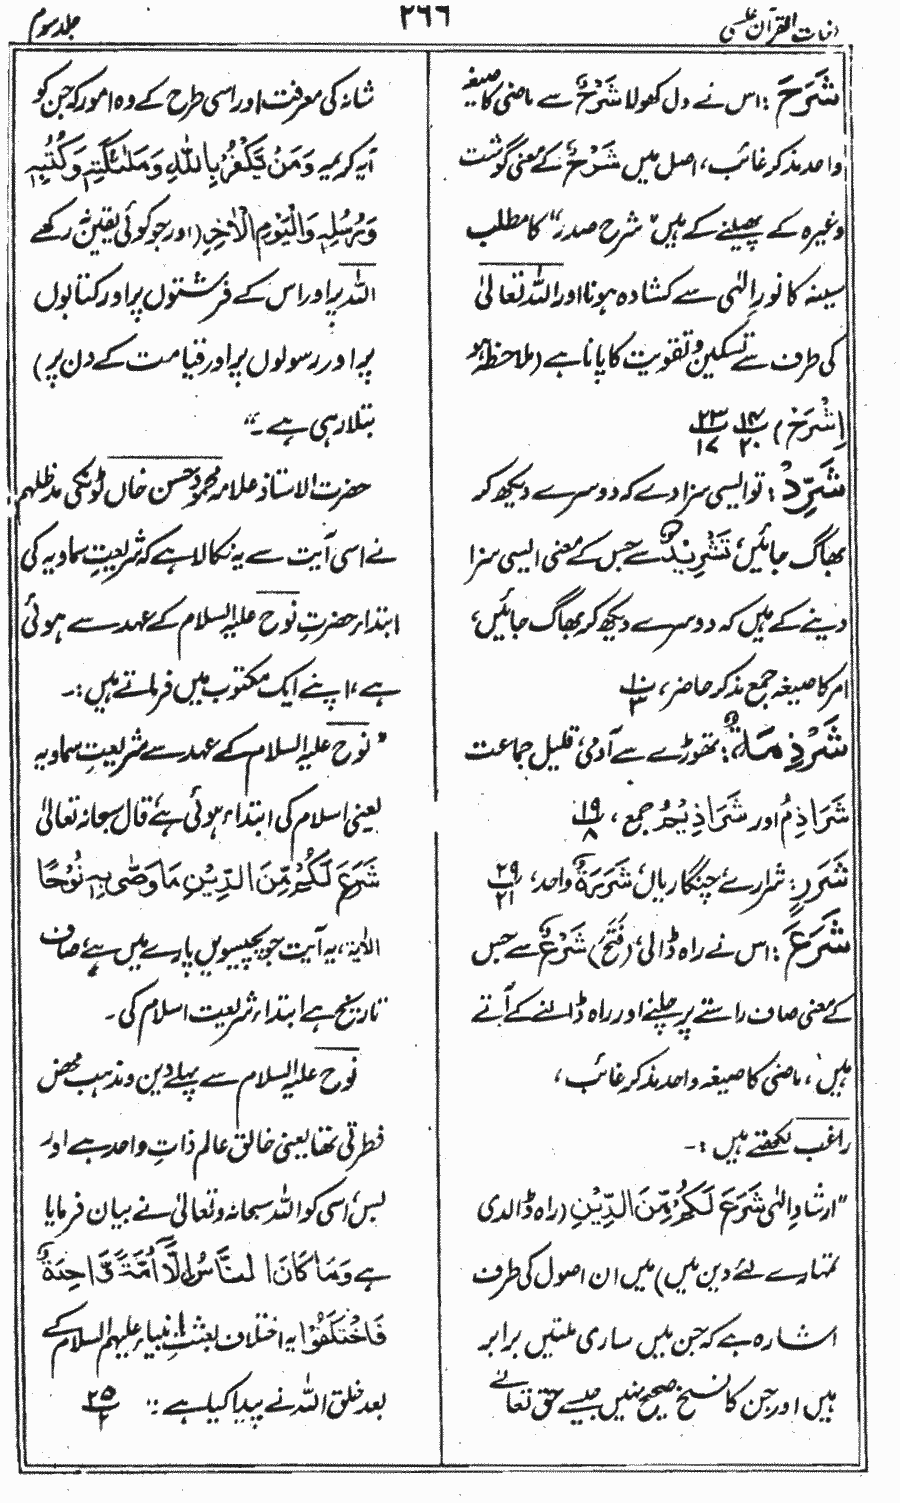 لغات القرآن عکسی
۲۶۶
جلد سوم
شَرَحَ : اس نے دل کھولا شَرْحٌ سے ماضی کا صیغہ
واحد مذکر غائب، اصل میں شَرْحٌ کے معنی گوشت
وغیرہ کے پھیلنے کے ہیں "شرح صدر" کا مطلب
سینہ کا نورِ الٰہی سے کشادہ ہونا اور اللہ تعالیٰ
کی طرف سے تسکین و تقویت کا پانا ہے (ملاحظہ ہو
اِشْرَحْ) ۱۴/۲۰ ۲۳/۱۷
شَرِّدْ : تو ایسی سزا دے کہ دوسرے دیکھ کر
بھاگ جائیں، تَشْرِیْدٌ سے جس کے معنی ایسی سزا
دینے کے ہیں کہ دوسرے دیکھ کر بھاگ جائیں،
امر کا صیغہ جمع مذکر حاضر، ۱۰/۳
شِرْذِمَةٌ : تھوڑے سے آدمی، قلیل جماعت
شَرَاذِمُ اور شَرَاذِیْمُ جمع، ۱۹/۸
شَرَرٍ : شرارے، چنگاریاں، شَرَرَةٌ واحد، ۲۹/۲۱
شَرَعَ : اس نے راہ ڈالی، (فَتَحَ) شَرْعٌ سے جس
کے معنی صاف راستے پر چلنے اور راہ ڈالنے کے آتے
ہیں، ماضی کا صیغہ واحد مذکر غائب،
راغب لکھتے ہیں :-
"ارشادِ الٰہی شَرَعَ لَكُمْ مِّنَ الدِّیْنِ (راہ ڈالدی
تمہارے لئے دین میں) میں ان اصول کی طرف
اشارہ ہے کہ جن میں ساری ملتیں برابر
ہیں اور جن کا نسخ صحیح نہیں جیسے حق تعالےٰ
شانہ کی معرفت اور اسی طرح کے وہ امور کہ جن کو
آیہ کریمہ وَمَنْ یَّكْفُرْ بِاللّٰهِ وَمَلٰٓئِكَتِهٖ وَكُتُبِهٖ
وَرُسُلِهٖ وَالْیَوْمِ الْاٰخِرِ (اور جو کوئی یقین نہ رکھے
اللہ پر اور اس کے فرشتوں پر اور کتابوں
پر اور رسولوں پر اور قیامت کے دن پر)
بتلا رہی ہے -"
حضرت الاستاذ علامہ محمود حسن خاں ٹونکی مدظلہم
نے اسی آیت سے یہ نکالا ہے کہ شریعتِ سماویہ کی
ابتداء حضرتِ نوح علیہ السلام کے عہد سے ہوئی
ہے، اپنے ایک مکتوب میں فرماتے ہیں :-
"نوح علیہ السلام کے عہد سے شریعتِ سماویہ
یعنی اسلام کی ابتداء ہوئی ہے، قال سبحانہ تعالیٰ
شَرَعَ لَكُمْ مِّنَ الدِّیْنِ مَا وَصّٰی بِهٖ نُوْحًا
الآیہ، یہ آیت جو پچیسویں پارے میں ہے، صاف
تاریخ ہے ابتداء شریعت اسلام کی -
نوح علیہ السلام سے پہلے دین و مذہب محض
فطرتی تھا یعنی خالق عالم ذاتِ واحد ہے اور
بس، اسی کو اللہ سبحانہ و تعالیٰ نے بیان فرمایا
ہے وَمَا كَانَ النَّاسُ اِلَّا اُمَّةً وَّاحِدَةً
فَاخْتَلَفُوْا یہ اختلاف بعثتِ انبیاء علیہم السلام کے
بعد خلق اللہ نے پیدا کیا ہے :" ۲۵/۲